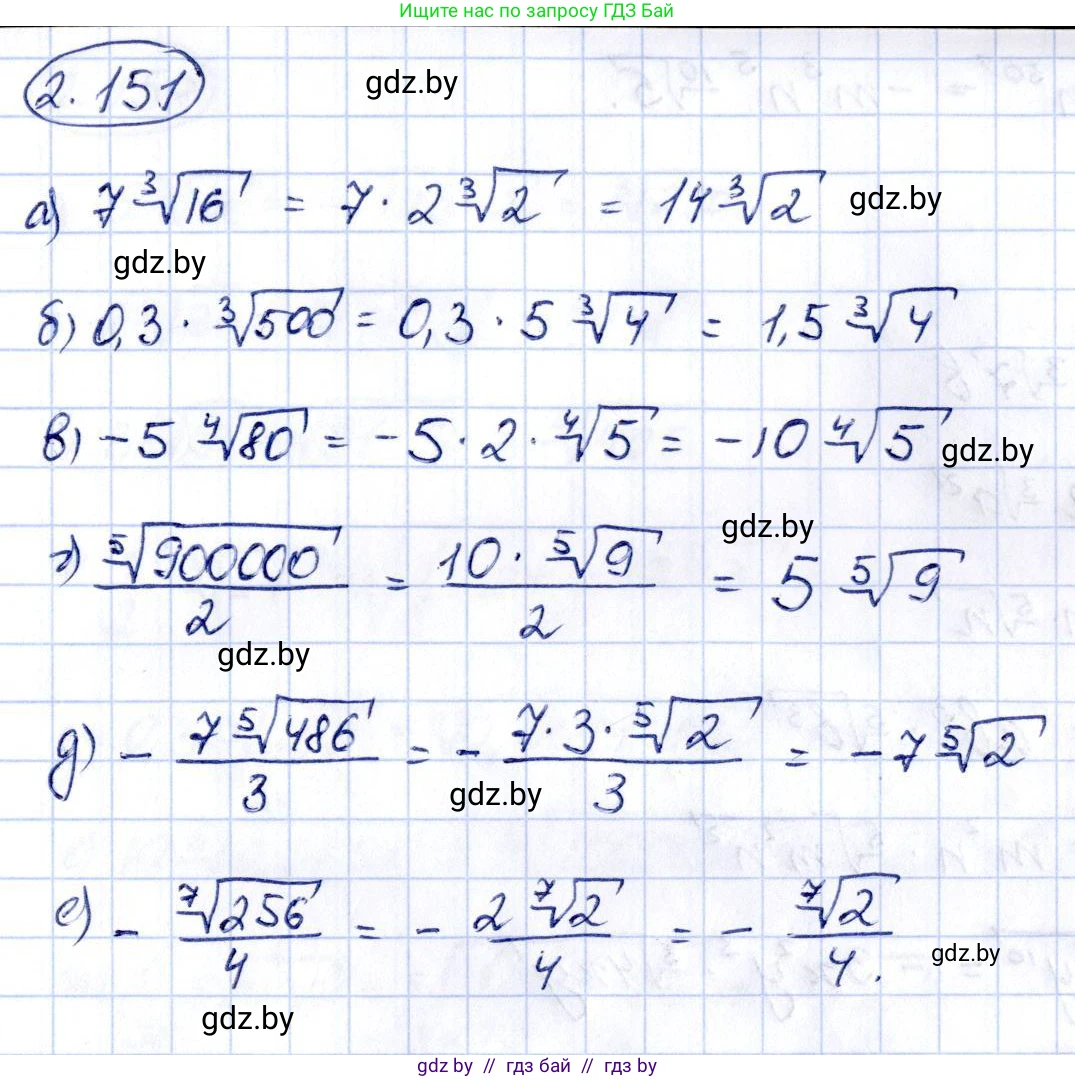 Ищите нас по запросу ГДЗ Бай
2.151
gdz.by
а) 7∛16 = 7 · 2∛2 = 14∛2
gdz.by
gdz.by
б) 0,3 · ∛500 = 0,3 · 5∛4 = 1,5∛4
в) -5 ∜80 = -5 · 2 · ∜5 = -10∜5
gdz.by
gdz.by
г) ⁵√900000 / 2 = 10 · ⁵√9 / 2 = 5 ⁵√9
gdz.by
д) - 7 ⁵√486 / 3 = - 7 · 3 · ⁵√2 / 3 = -7 ⁵√2
gdz.by
е) - ⁷√256 / 4 = - 2 ⁷√2 / 4 = - ⁷√2 / 4.
gdz.by
gdz.by
gdz by // гдз бай // gdz by